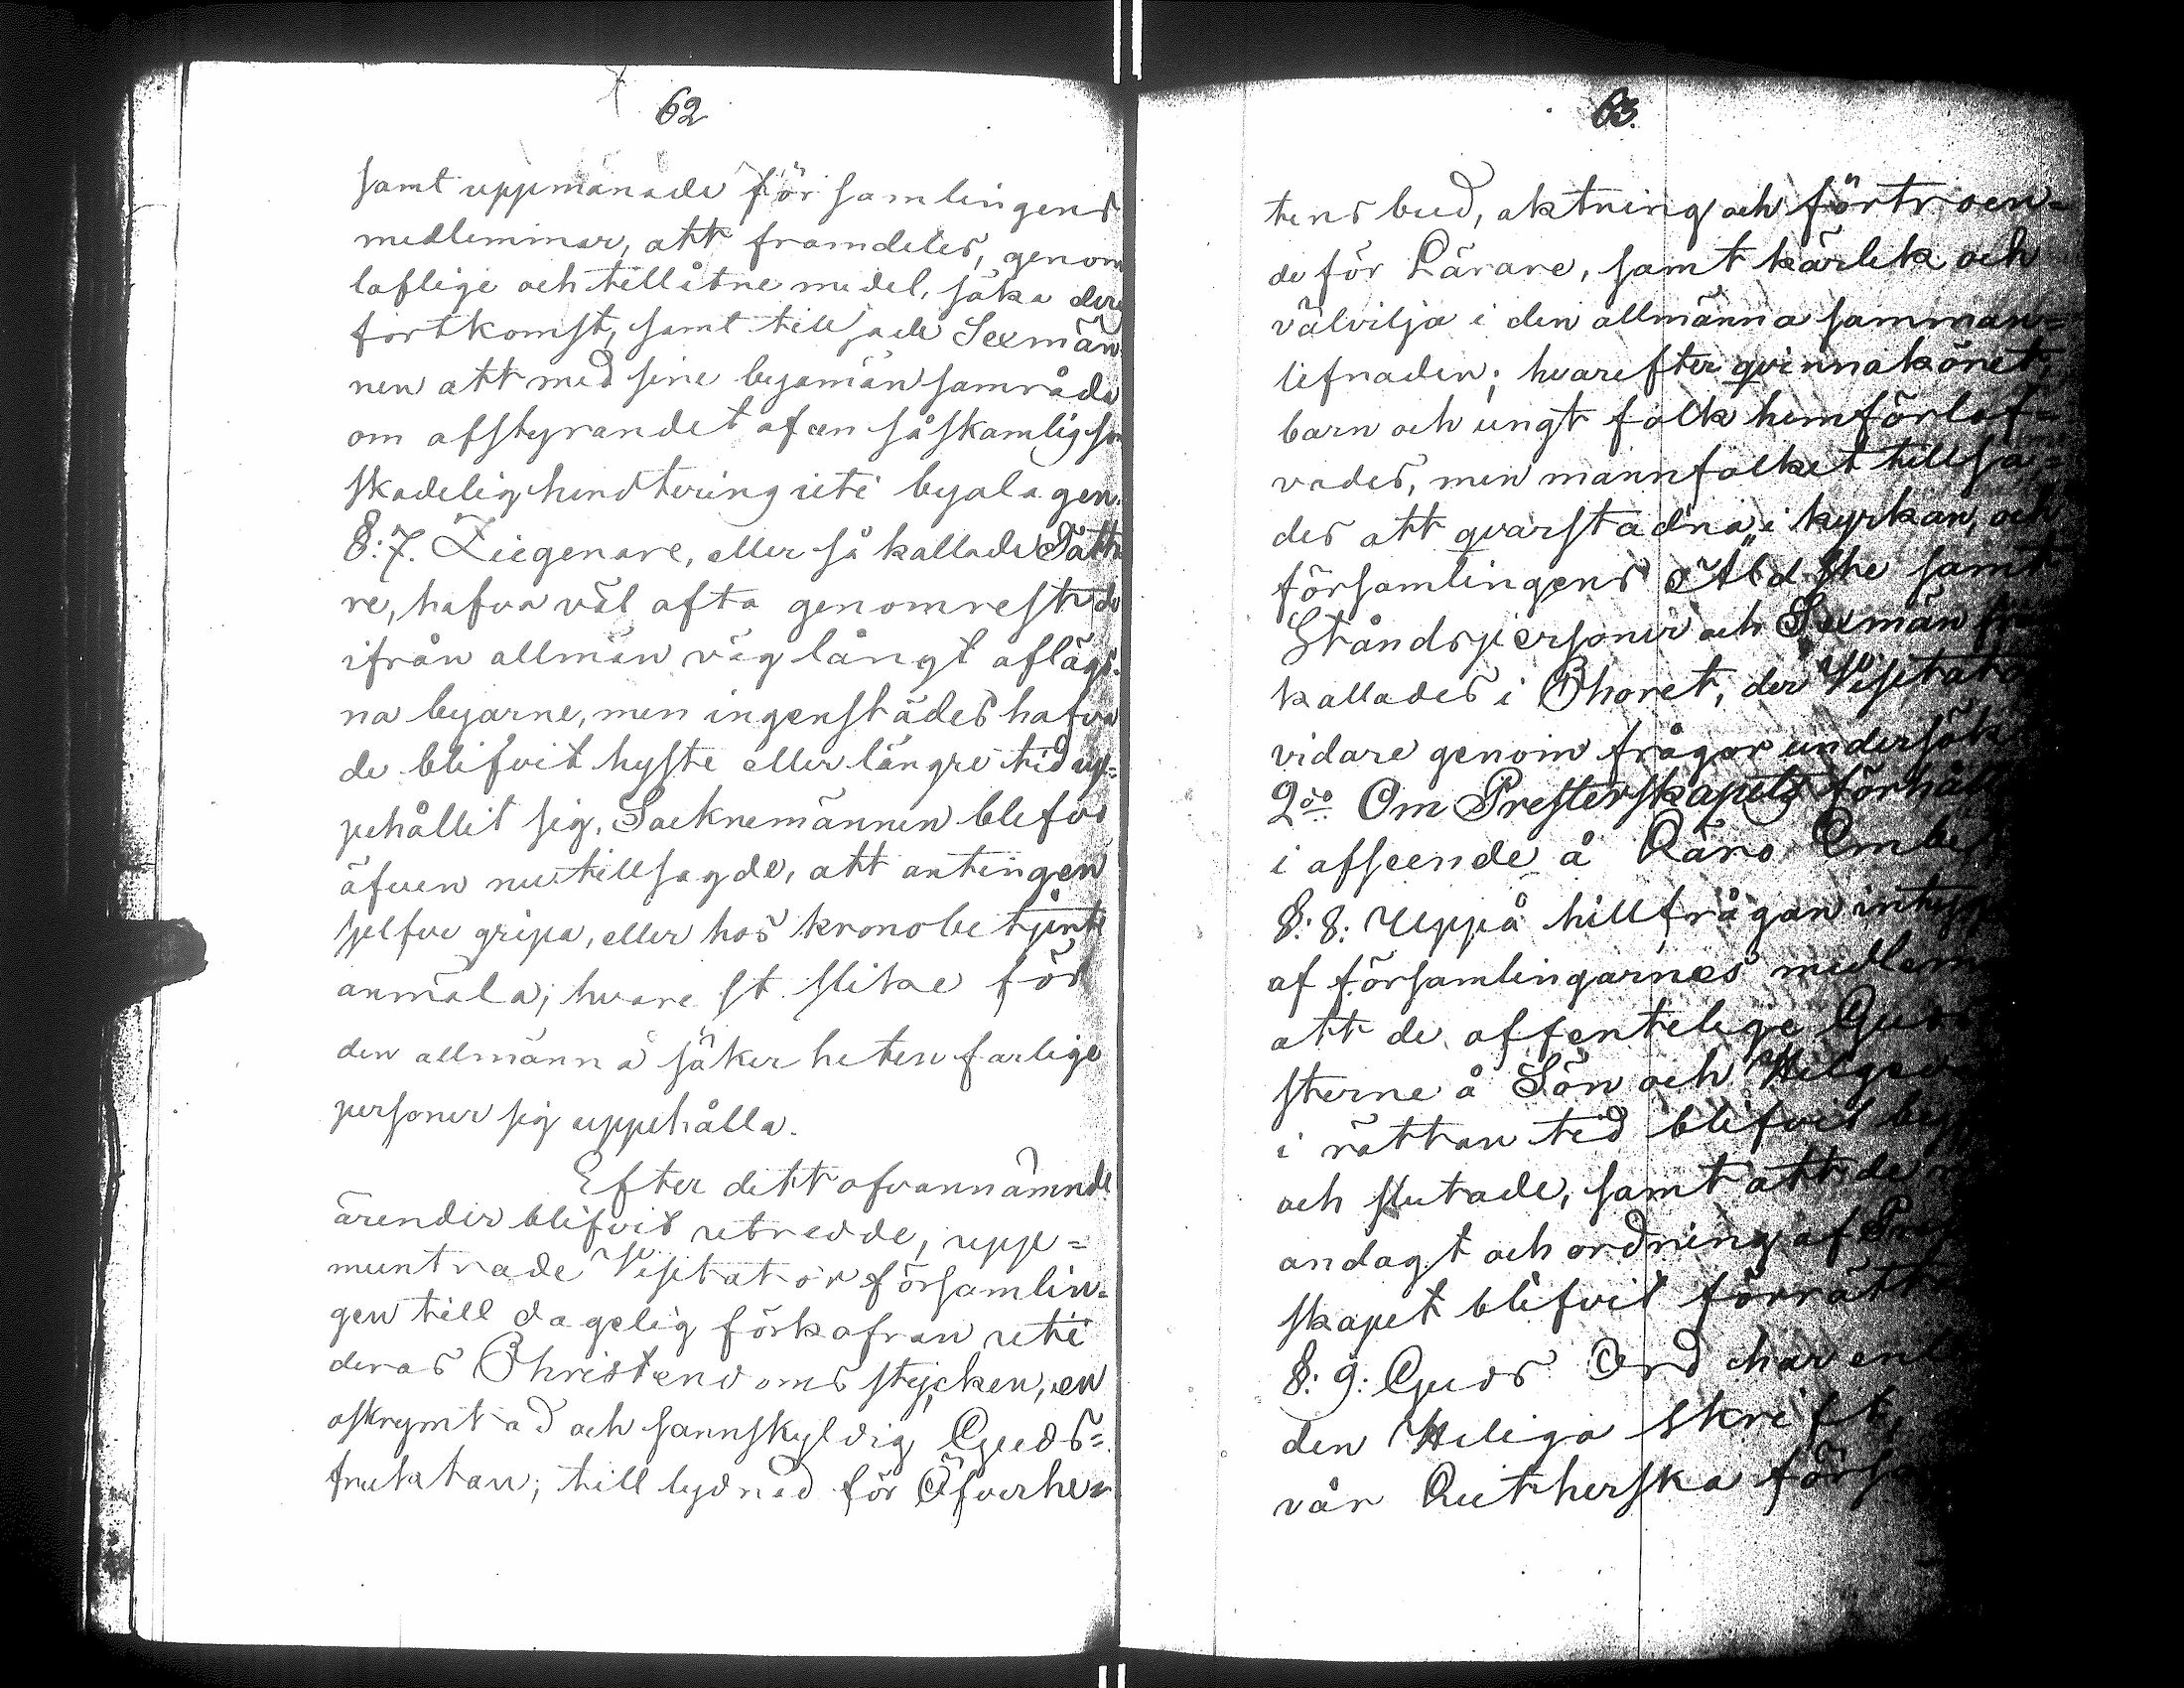 62
samt uppmanade församlingens
medlemmar, att framdeles, genom
loflige och tillåtne medel, söka dera
fortkomst, samt tillsade Sexmän
nen att med sine byamän samråda
om afstyrandet af en så skamlig som
skadelig handtering uti byalagen.
§: 7. Ziegenare, eller så kallade Tatta
re, hafva väl ofta genomrest de
ifrån allmän väg långt afläg
na byarne, men ingenstädes hafva
de blifvit hyste eller längre tid up=
pehållit sig. Socknemännen blefvo
äfven nu tillsagde, att antingen
sjelfve gripa, eller hos kronobetjente
anmäla; hvarest slike för
den allmänna säkerheten farlige
personer sig uppehålla.
Efter dett ofvannämnde
ärender blifvit utredde, upp=
muntrade Visitator församlin=
gen till dagelig förkofran uti
deras Christendoms stycken, en
oskrymtad och sannskyldig Guds=
fruktan; till lydnad för Öfverhe
63.
tens bud, aktning och förtroen=
de för Lärare, samt kärlek och
välvilja i den allmänna samman=
lefnaden; hvarefter qvinnakönet,
barn och ungt folk hemförlof=
vades, men mannfolket tillsa=
des att qvarstadna i kyrkan, och
församlingens Äldste samt
Ståndspersoner och Sexmän
kallades i Choret, der Visitator
vidare genom frågor undersökte
2do Om Presterskapets förhåll
i afseende å Läro Embe
§: 8: Uppå tillfrågan intyg
af församlingarnes medlem
att de offentelige Guds
sterne å Sön och Helged
i rättan tid blifvit beg
och slutade, samt att de
andagt och ordning af Pres
skapet blifvit förrätt
§: 9: Guds Ord har enl
den Heliga skrift,
vår Lutherska förs